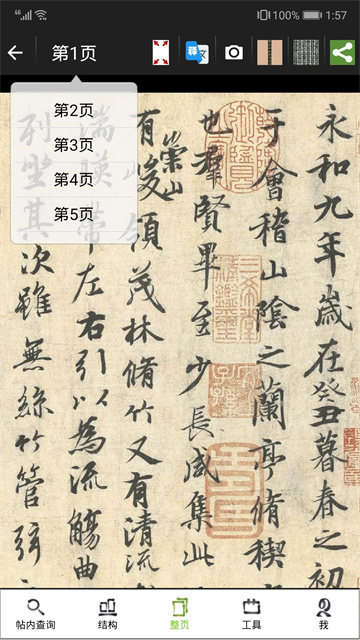 4G 100% 1:57
第1页
第2页
第3页
第4页
第5页
永和九年歲在癸丑暮春之初
于會稽山陰之蘭亭脩稧
也羣賢畢至少長咸集此
有崇山峻領茂林脩竹又有清流
湍暎帶左右引以為流觴曲
列坐其次雖無絲竹管弦
帖内查询
结构
整页
工具
我